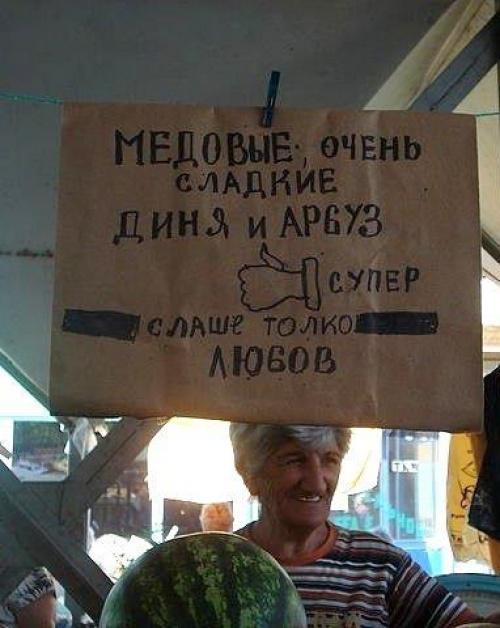 МЕДОВЫЕ, ОЧЕНЬ
СЛАДКИЕ
ДИНЯ И АРВУЗ
СУПЕР
СЛАШЕ ТОЛКО
ЛЮБОВ